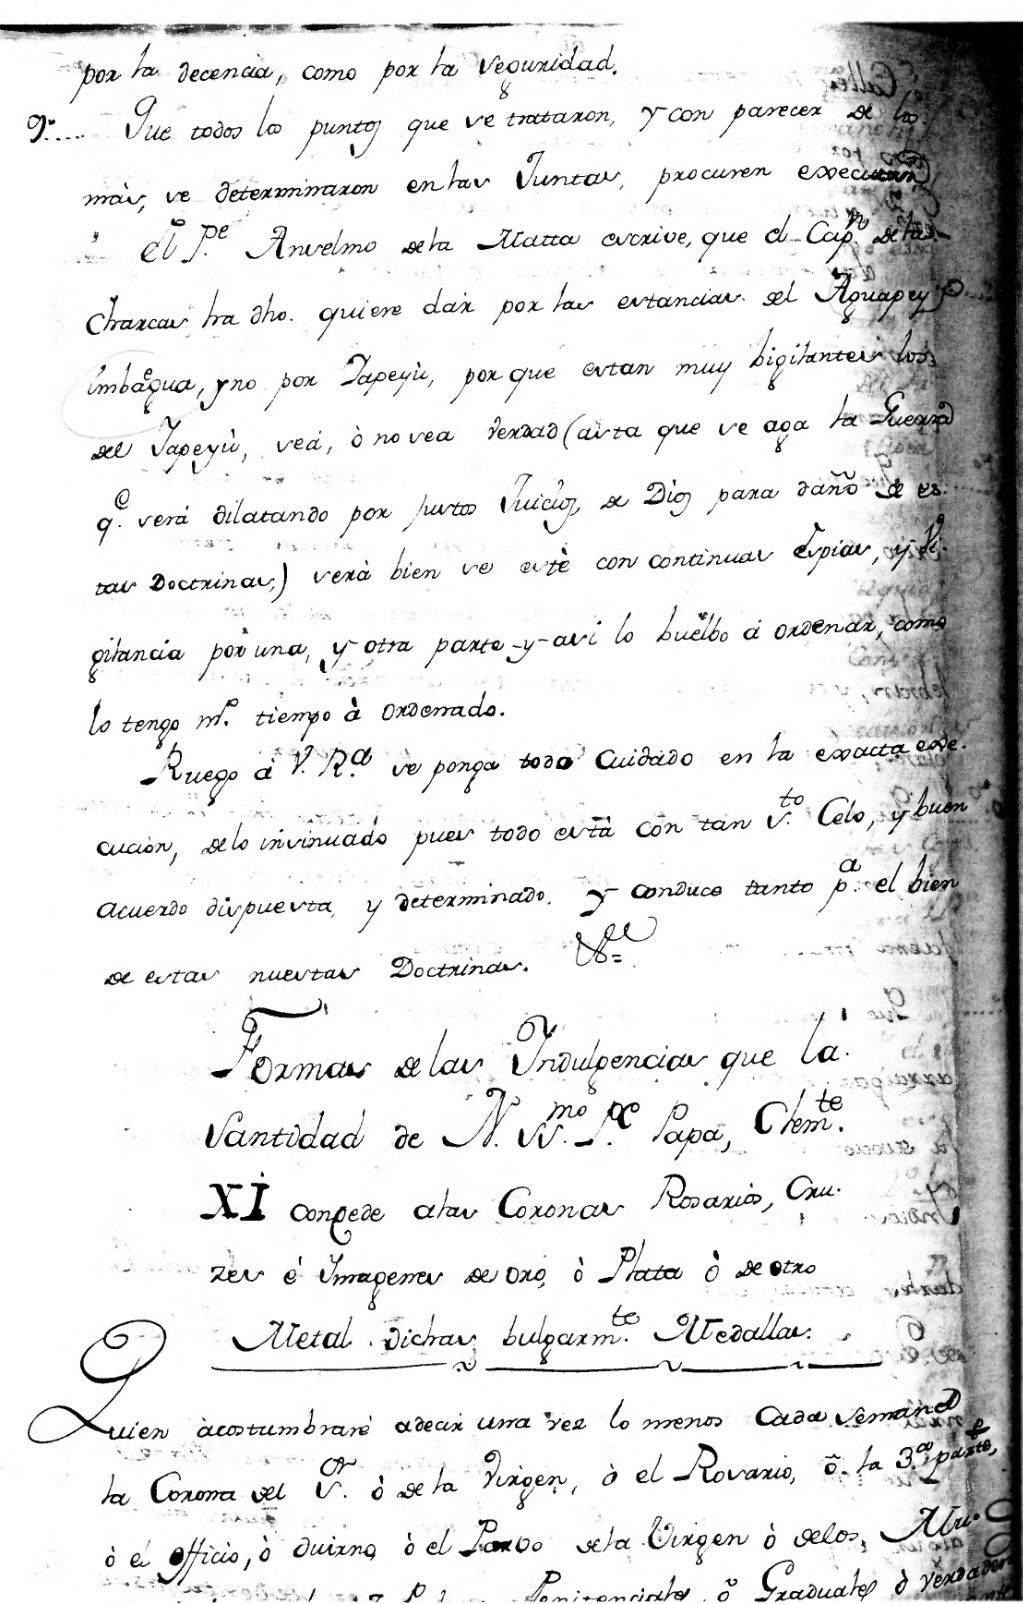 por la decencia, como por la seguridad.
9.º.... Que todos los puntos que se trataron, y con parecer de los
más, se determinaron en las Juntas, procuren executar
el P.e Anselmo de la Matta escrive, que el Cap.n de los
Charcas ha dho. quiere dar por las estancias del Aguapey o
imbägua, y no por Iapeyù, por que estan muy bigilantes los
del Iapeyù, seá, ò no sea verdad (asta que se aga la Guerra
q.e será dilatando por justos Iuicios, de Dios para daño de es-
tas Doctrinas,) será bien se estè con continuas Espias, y Vi-
gilancia por una, y otra parte y asi lo buelbo á ordenar, como
lo tengo m.º tiempo à ordenado.
Ruego á V. R.a se ponga todo Cuidado en la exacta exe-
cucion, de lo insinuado pues todo está con tan S.to Celo, y buen
acuerdo dispuesta, y determinado. y conduce tanto p.a el bien
de estas nuestas Doctrinas.
Formas de las Indulgencias que la
Santidad de N. SS.mo P.e Papa, Clem.te
XI concede a las Coronas Rosarios, Cru-
zes é Imagenes de oro, ò Plata ò de otro
Metal dichas bulgarm.te Medallas.
Quien àcostumbraré adecir una vez lo menos Cada Semana
la Corona del S.or ò de la Virgen, ò el Rosario, õ la 3.a parte,
ò el officio, ò duirno, ò el Parvo de la Virgen ò delos, Mu-
Penitenciales õ Graduales ò verdader